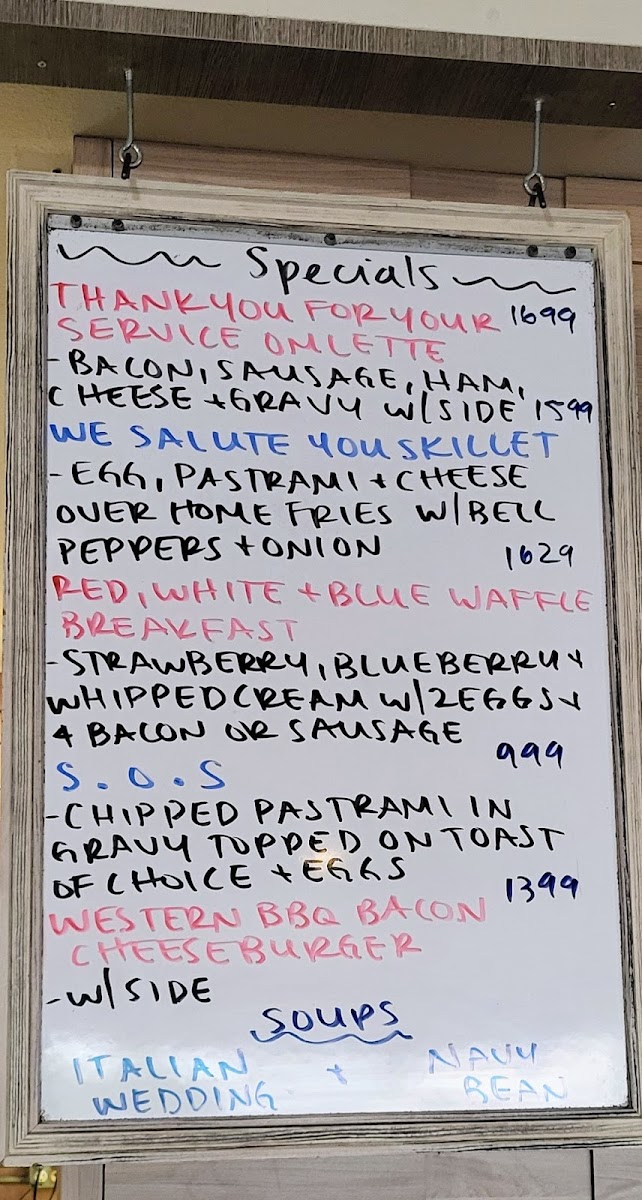 Specials
THANK YOU FOR YOUR 1699
SERVICE OMLETTE
- BACON, SAUSAGE, HAM,
CHEESE + GRAVY W/SIDE 1599
WE SALUTE YOU SKILLET
- EGG, PASTRAMI + CHEESE
OVER HOME FRIES W/BELL
PEPPERS + ONION 1629
RED, WHITE + BLUE WAFFLE
BREAKFAST
- STRAWBERRY, BLUEBERRY +
WHIPPED CREAM W/2 EGGS +
4 BACON OR SAUSAGE 999
S.O.S
- CHIPPED PASTRAMI IN
GRAVY TOPPED ON TOAST
OF CHOICE + EGGS 1399
WESTERN BBQ BACON
CHEESEBURGER
- W/SIDE
SOUPS
ITALIAN + NAVY
WEDDING BEAN